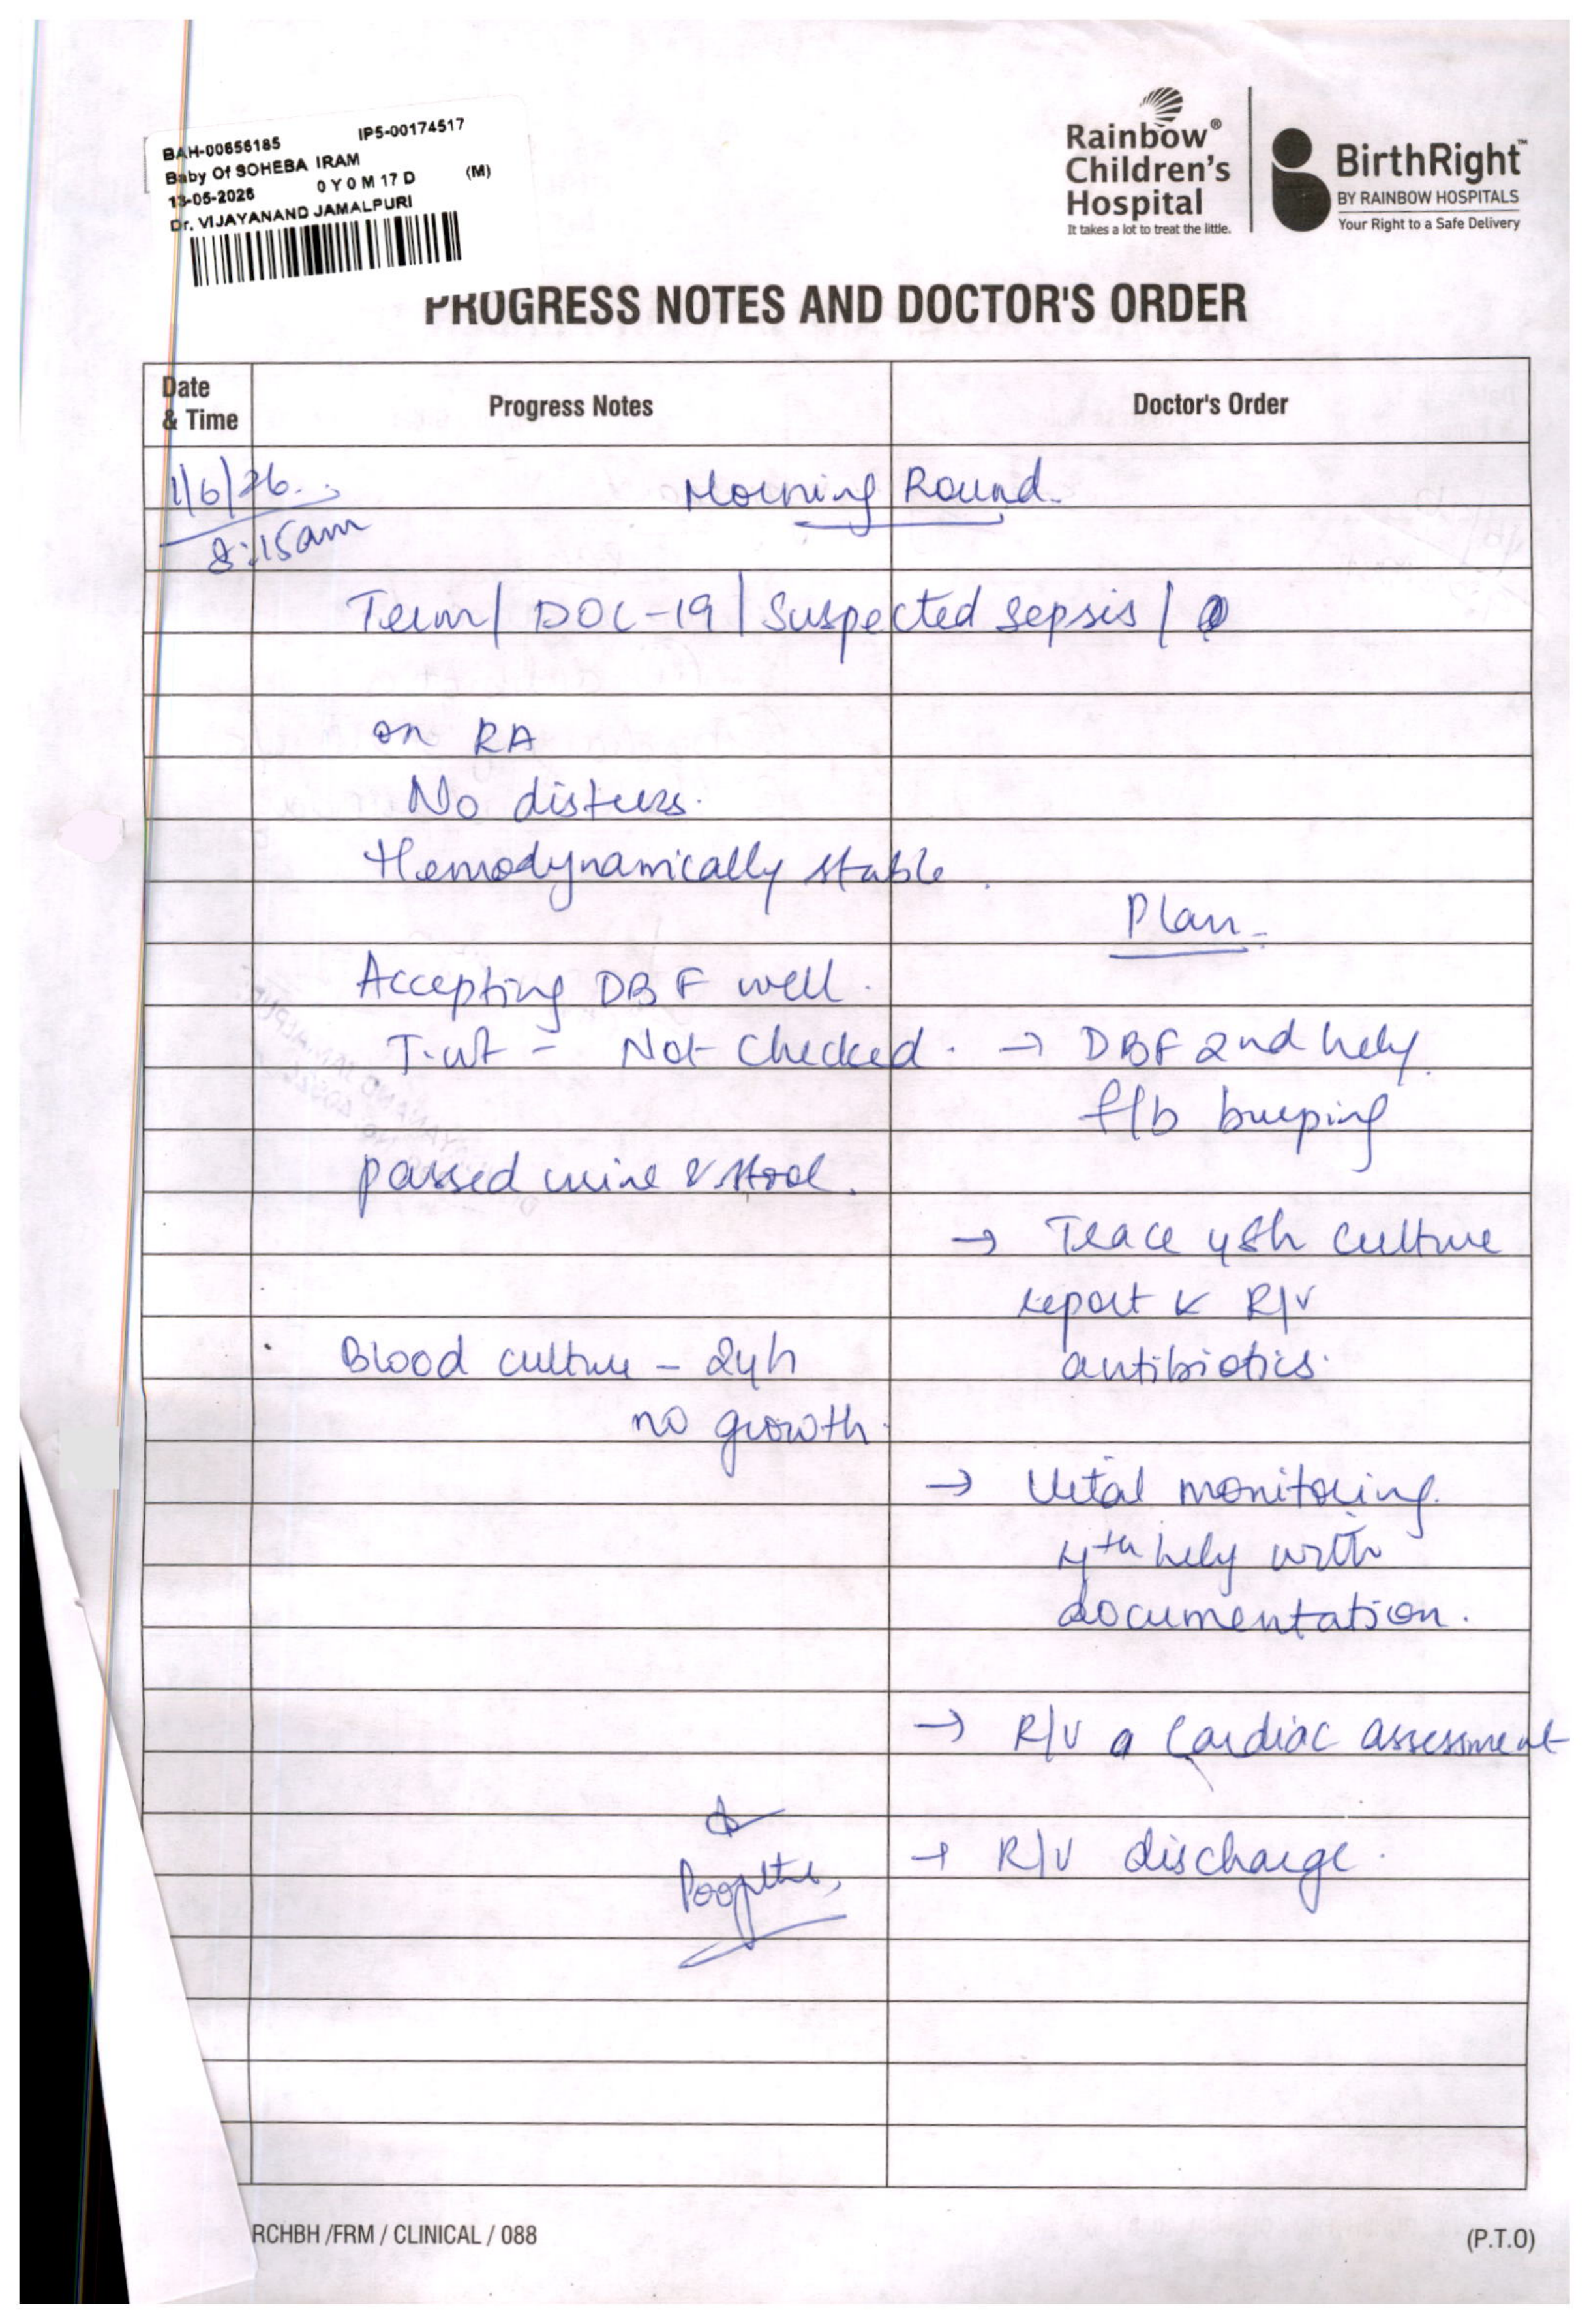 BAH-00656185 IP5-00174517
Baby Of SOHEBA IRAM
13-05-2026 0 Y 0 M 17 D (M)
Dr. VIJAYANAND JAMALPURI
Rainbow®
Children's
Hospital
It takes a lot to treat the little.
BirthRight™
BY RAINBOW HOSPITALS
Your Right to a Safe Delivery
PROGRESS NOTES AND DOCTOR'S ORDER
Date
& Time
Progress Notes
Doctor's Order
1/6/26
8:15am
Morning Round
Term / DOL-19 / Suspected sepsis /
on RA
No distress.
Hemodynamically stable.
Plan
Accepting DBF well.
T.wt - Not checked. → DBF 2nd hrly
f/b burping
passed urine & stool.
→ Trace 48h culture
report & R/v
Blood culture - 24h
antibiotics.
no growth.
→ Vital monitoring
4th hrly with
documentation.
→ R/v a Cardiac assessment
→ R/v discharge.
RCHBH /FRM / CLINICAL / 088
(P.T.O)